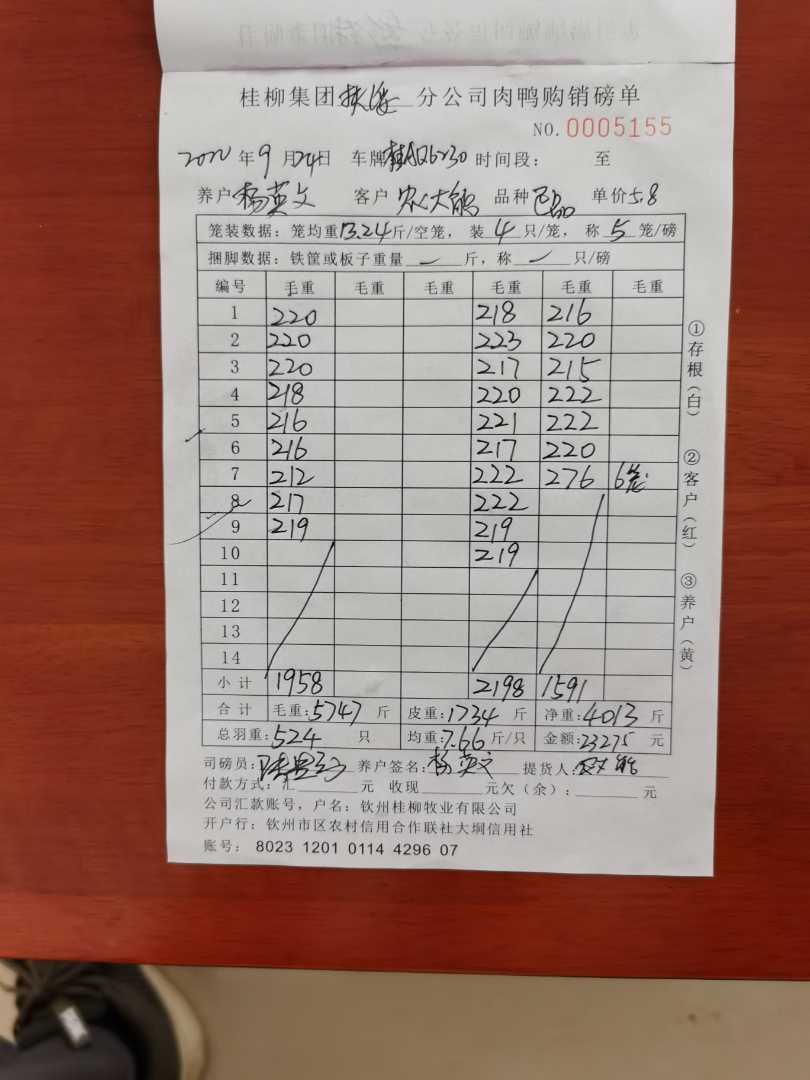 桂柳集团 分公司肉鸭购销磅单
NO.0005155
2022年9月24日 车牌 时间段: 至
养户杨英文 客户 农大鹏 品种 单价5.8
笼装数据: 笼均重13.24斤/空笼, 装4只/笼, 称5笼/磅
捆脚数据: 铁筐或板子重量 — 斤, 称 — 只/磅
编号 毛重 毛重 毛重 毛重 毛重 毛重
1 220 218 216
2 220 223 220
3 220 217 215
4 218 220 222
5 216 221 222
6 216 217 220
7 212 222 276 6笼
8 217 222
9 219 219
10 219
11
12
13
14
小计 1958 2198 1591
合计 毛重:5747斤 皮重:1734斤 净重:4013斤
总羽重:524只 均重:7.66斤/只 金额:23275元
司磅员: 养户签名:杨英文 提货人:
付款方式: 汇 元 收现 元欠(余): 元
公司汇款账号, 户名: 钦州桂柳牧业有限公司
开户行: 钦州市区农村信用合作联社大垌信用社
账号: 8023 1201 0114 4296 07
①存根(白) ②客户(红) ③养户(黄)